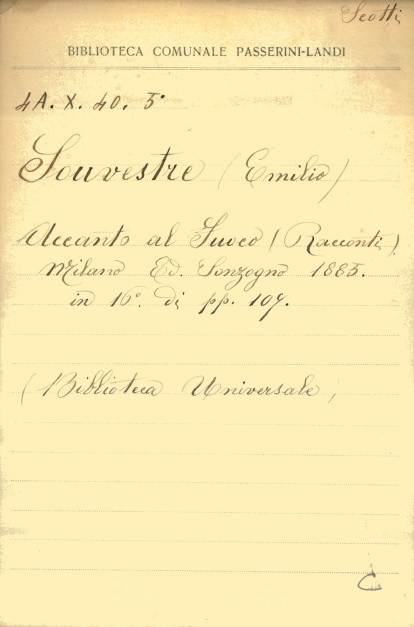 Scotti
BIBLIOTECA COMUNALE PASSERINI-LANDI
4A. X. 40. 5°
Souvestre (Emilio)
Accanto al Fuoco (Racconti).
Milano Ed. Sonzogno 1885.
in 16° di pp. 107.
(Biblioteca Universale)
C